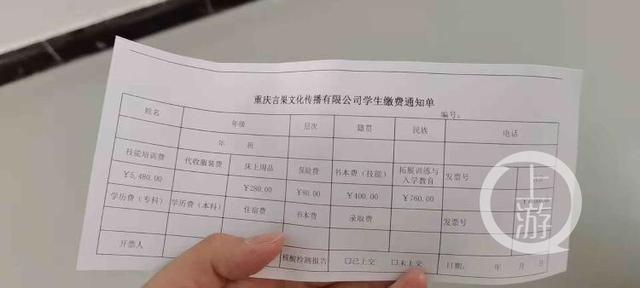 重庆言果文化传播有限公司学生缴费通知单
编号:
姓名 年级 层次 籍贯 民族 电话
年 班
技能培训费 代收服装费 床上用品 保险费 书本费（技能） 拓展训练与入学教育 发票号
¥5,480.00 ¥280.00 ¥80.00 ¥400.00 ¥760.00
学历费（专科） 学历费（本科） 住宿费 书本费 录取费 发票号
开票人 核酸检测报告 □已上交 □未上交 日期: 年 月 日
上游